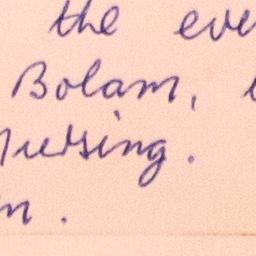 the eve
Bolam,
Nursing.
n.